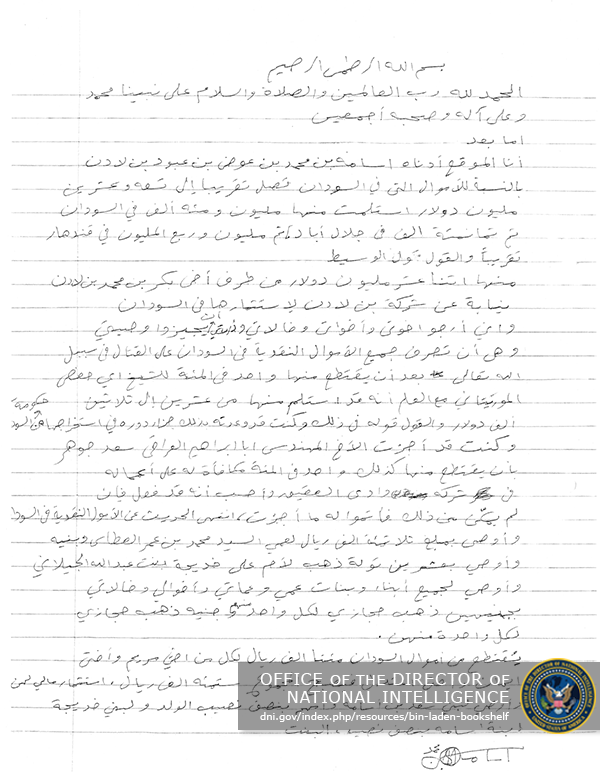 بسم الله الرحمن الرحيم
الحمد لله رب العالمين والصلاة والسلام على نبينا محمد
وعلى آله وصحبه أجمعين
اما بعد
أنا الموقع أدناه اسامه بن محمد بن عوض بن عبود بن لادن
بالنسبة للأموال التي في السودان فتصل تقريبا إلى تسعه وعشرين
مليون دولار استلمت منها مليون ومئة ألف في السودان
ثم ثمانمئة الف في جلال أباد ثم مليون وربع المليون في قندهار
تقريباً والقول قول الوسيط
منها اثنا عشر مليون دولار من طرف أخي بكر بن محمد بن لادن
نيابة عن شركة بن لادن لاستثمارها في السودان
واني أرجو اخوتي وأخواتي وخالاتي أن يجيزوا وصيتي
وهي أن تصرف جميع الأموال النقدية في السودان على القتال في سبيل
الله تعالى بعد أن يقتطع منها واحد في المئة للشيخ ابي حفص
الموريتاني مع العلم أنه قد استلم منها من عشرين إلى ثلاثين
ألف دولار والقول قوله في ذلك وكنت قد وعدته بذلك جزاء دوره في استخراجها من حكومة السودان
وكنت قد أجزت الأخ المهندس ابا ابراهيم العراقي سعد جوهر
بأن يقتطع منها كذلك واحد في المئة مكافأة له على أعماله
في شركة وادي العقيق وأحسب أنه قد فعل فإن
لم يكن من ذلك فأتموا له ما أجزت، انتهى الحديث عن الأموال النقدية في السودان
وأوصي بمبلغ ثلاثمئة الف ريال لعمي السيد محمد بن عمر العطاس وبنيه
وأوصي بعشرين تولة ذهب لأم علي خديجة بنت عبدالله الجيلاني
وأوصي لجميع أبناء وبنات عمي وعماتي وأخوالي وخالاتي
بجنيهين ذهب حجازي لكل واحد منهم وجنيه ذهب حجازي
لكل واحدة منهن.
يقتطع من أموال السودان مئتا الف ريال لكل من أختي مريم وأختي
OFFICE OF THE DIRECTOR OF
NATIONAL INTELLIGENCE
dni.gov/index.php/resources/bin-laden-bookshelf
ابنة اسامه بنصف نصيب البنت